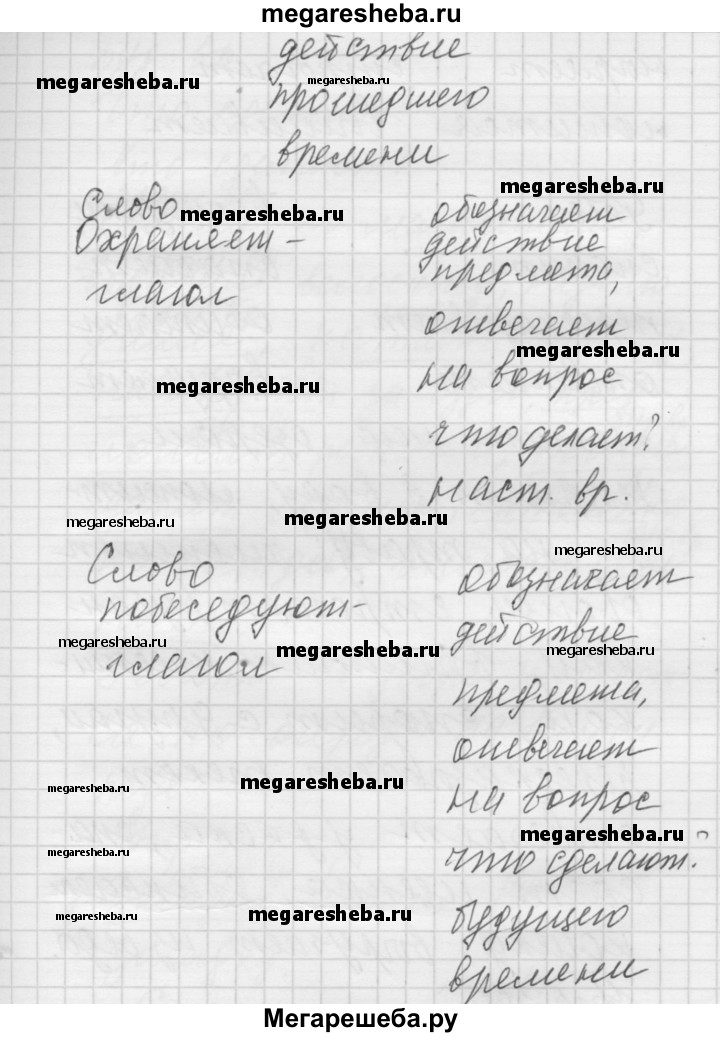 megaresheba.ru
действие
megaresheba.ru
megaresheba.ru
прошедшего
времени
megaresheba.ru
Слово
megaresheba.ru
обозначает
Охраняет -
действие
предмета,
глагол
отвечает
megaresheba.ru
megaresheba.ru
на вопрос
что делает?
наст. вр.
megaresheba.ru
megaresheba.ru
megaresheba.ru
Слово
обозначает
побеседуют-
действие
megaresheba.ru
megaresheba.ru
megaresheba.ru
глагол
предмета,
отвечает
megaresheba.ru
megaresheba.ru
на вопрос
megaresheba.ru
megaresheba.ru
что сделают?
megaresheba.ru
megaresheba.ru
будущего
времени
Мегарешеба.ру